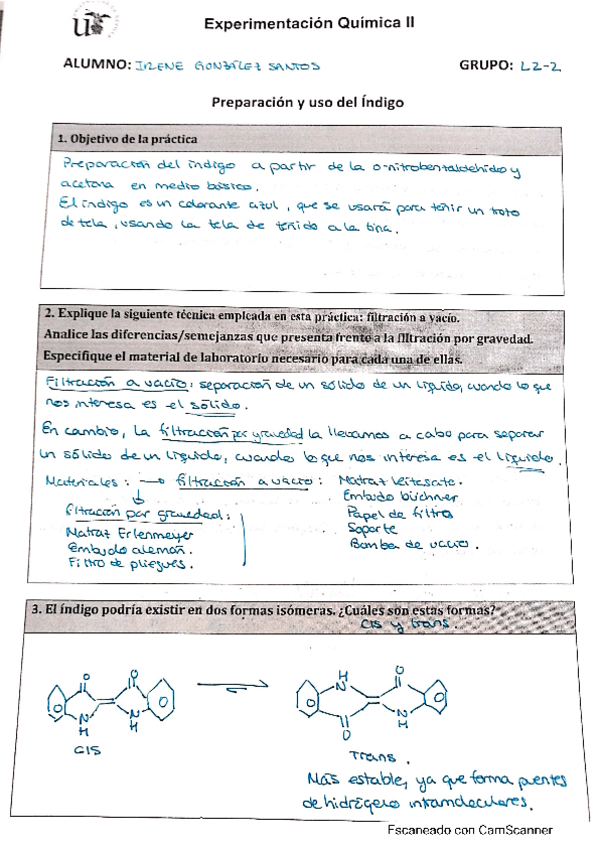 Experimentación Química II
ALUMNO: IRENE GONZÁLEZ SANTOS GRUPO: L2-2
Preparación y uso del Índigo
1. Objetivo de la práctica
Preparación del índigo a partir de la o-nitrobenzaldehído y
acetona en medio básico.
El índigo es un colorante azul, que se usará para teñir un trozo
de tela, usando la tela de teñido a la tina.
2. Explique la siguiente técnica empleada en esta práctica: filtración a vacío.
Analice las diferencias/semejanzas que presenta frente a la filtración por gravedad.
Especifique el material de laboratorio necesario para cada una de ellas.
Filtración a vacío: separación de un sólido de un líquido, cuando lo que
nos interesa es el sólido.
En cambio, la filtración por gravedad la llevamos a cabo para separar
un sólido de un líquido, cuando lo que nos interesa es el líquido.
Materiales: → filtración a vacío: Matraz kitasato.
Embudo büchner
filtración por gravedad: Papel de filtro
Matraz Erlenmeyer Soporte
Embudo alemán. Bomba de vacío.
Filtro de pliegues.
3. El índigo podría existir en dos formas isómeras. ¿Cuáles son estas formas?
Cis y trans.
O O H O
N N N N
H H O H
CIS
Trans.
Más estable, ya que forma puentes
de hidrógeno intramoleculares.
Escaneado con CamScanner